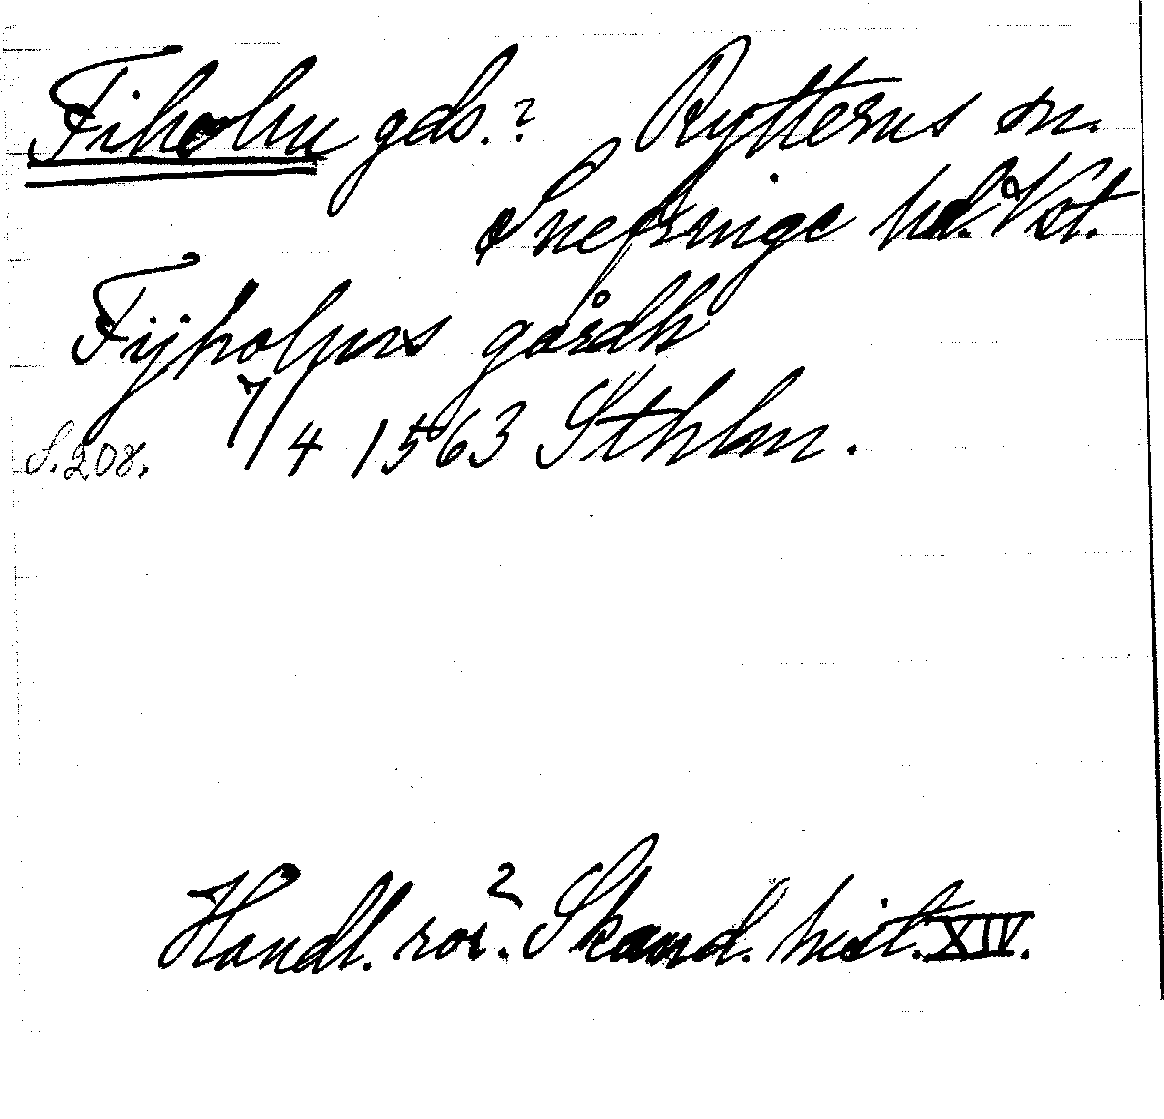 Fiholm gds.? Rytterns sn.
Snefringe hd. Vst.
Fijholms gårdh
S. 208. 7/4 1563 Sthlm.
Handl. rör. Skand. hist. XIV.